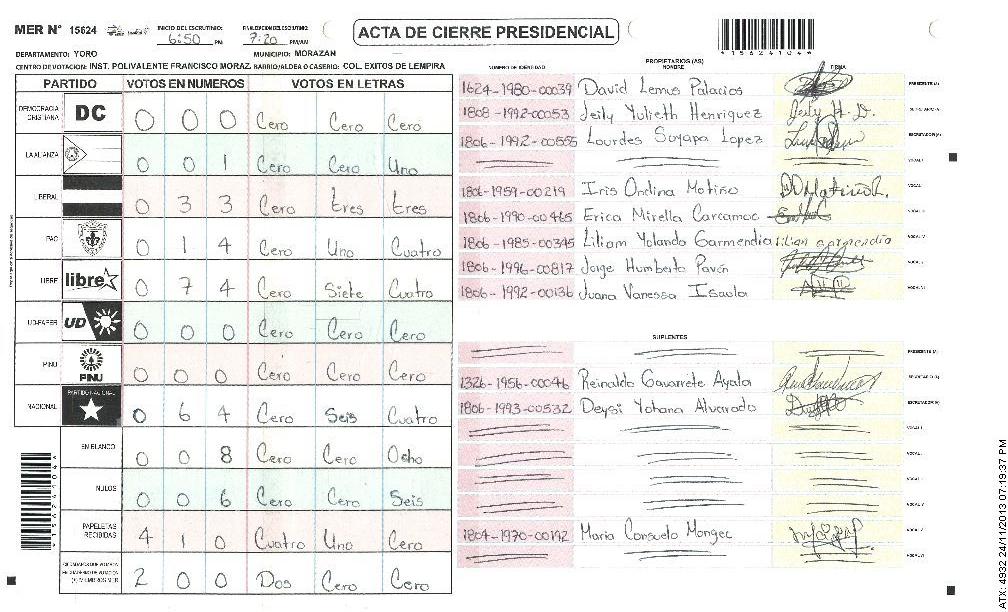 MER N° 15624 INICIO DEL ESCRUTINIO: 6:50 PM FINALIZACION DEL ESCRUTINIO: 7:20 PM/AM
ACTA DE CIERRE PRESIDENCIAL
*15624104*
DEPARTAMENTO: YORO MUNICIPIO: MORAZAN
CENTRO DE VOTACION: INST. POLIVALENTE FRANCISCO MORAZ BARRIO/ALDEA O CASERIO: COL. EXITOS DE LEMPIRA
PARTIDO VOTOS EN NUMEROS VOTOS EN LETRAS
DEMOCRACIA CRISTIANA DC 0 0 0 Cero Cero Cero
LA ALIANZA 0 0 1 Cero Cero Uno
LIBERAL 0 3 3 Cero tres tres
PAC 0 1 4 Cero Uno Cuatro
LIBRE libre 0 7 4 Cero Siete Cuatro
UD-FAPER UD 0 0 0 Cero Cero Cero
PINU PINU 0 0 0 Cero Cero Cero
NACIONAL PARTIDO NACIONAL 0 6 4 Cero Seis Cuatro
EN BLANCO 0 0 8 Cero Cero Ocho
NULOS 0 0 6 Cero Cero Seis
PAPELETAS RECIBIDAS 4 1 0 Cuatro Uno Cero
2 0 0 Dos Cero Cero
*15624104*
PROPIETARIOS (AS)
NUMERO DE IDENTIDAD NOMBRE FIRMA
1624-1980-00039 David Lemus Palacios PRESIDENTE (A)
1808-1992-00053 Jeily Yulieth Henriquez Jeily H. D. SECRETARIO (A)
1806-1992-00555 Lourdes Suyapa Lopez ESCRUTADOR (A)
VOCAL I
1806-1959-00219 Iris Ondina Motiño VOCAL
1806-1990-00465 Erica Mirella Carcamoc VOCAL
1806-1985-00345 Liliam Yolando Garmendia lilian garmendia VOCAL
1806-1996-00817 Jorge Humberto Pavón VOCAL
1806-1992-00136 Juana Vanessa Isaula VOCAL
SUPLENTES
PRESIDENTE (A)
1326-1956-00046 Reinaldo Gavarrete Ayala SECRETARIO (A)
1806-1993-00532 Deysi Yohana Alvarado ESCRUTADOR (A)
VOCAL I
VOCAL
VOCAL
VOCAL
1804-1970-00192 Maria Consuelo Monge VOCAL
VOCAL
ATX: 4932 24/11/2013 07:19:37 PM